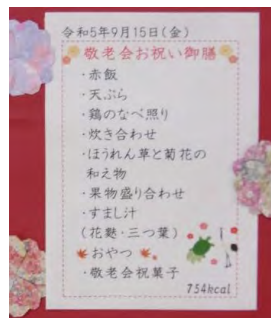 令和5年9月15日(金)
敬老会お祝い御膳
・赤飯
・天ぷら
・鶏のなべ照り
・炊き合わせ
・ほうれん草と菊花の
和え物
・果物盛り合わせ
・すまし汁
(花麩・三つ葉)
おやつ
・敬老会祝菓子
754kcal